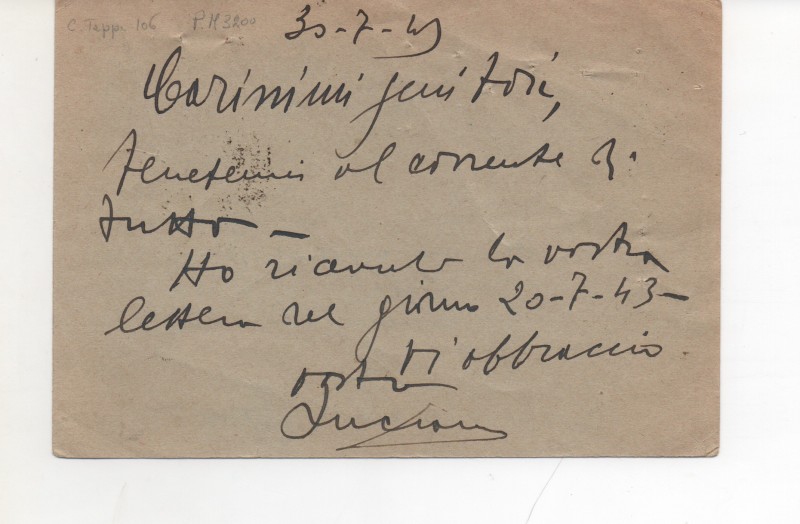 C. Tapp. 106 P.M 3200
30-7-43
Carissimi genitori,
Tenetemi al corrente di
tutto -
Ho ricevuto la vostra
lettera del giorno 20-7-43 -
Vi abbraccio
vostro
Luciano